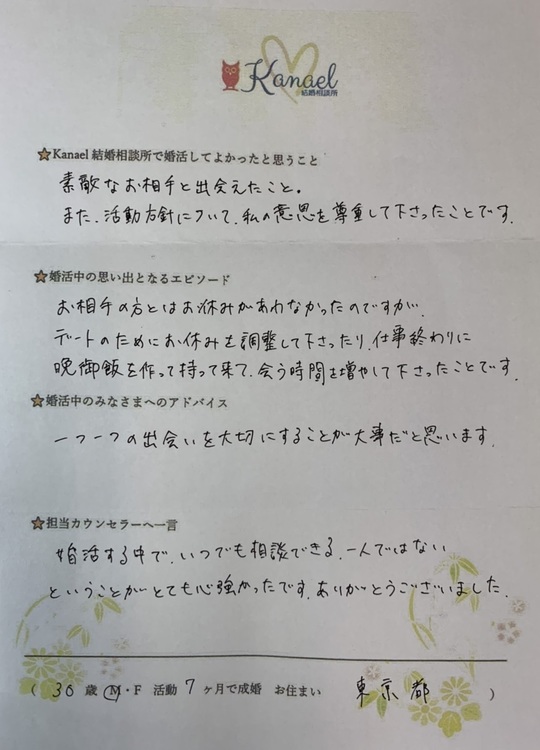 Kanael
結婚相談所
Kanael 結婚相談所で婚活してよかったと思うこと
素敵なお相手と出会えたこと。
また、活動方針について、私の意思を尊重して下さったことです。
婚活中の思い出となるエピソード
お相手の方とはお休みがあわなかったのですが、
デートのためにお休みを調整して下さったり、仕事終わりに
晩御飯を作って持って来て、会う時間を増やして下さったことです。
婚活中のみなさまへのアドバイス
一つ一つの出会いを大切にすることが大事だと思います。
担当カウンセラーへ一言
婚活する中で、いつでも相談できる、一人ではない
ということがとても心強かったです。ありがとうございました。
( 36 歳 M・F 活動 7 ヶ月で成婚 お住まい 東京都 )